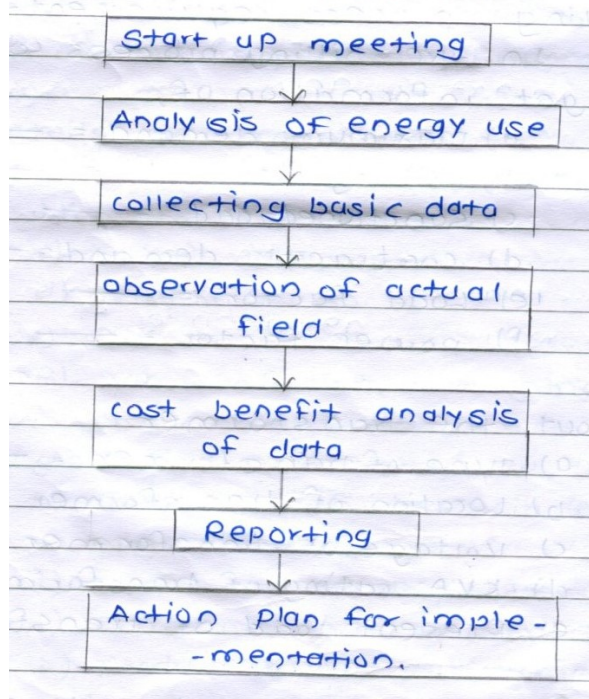 Start up meeting
Analysis of energy use
collecting basic data
observation of actual
field
cost benefit analysis
of data
Reporting
Action plan for imple-
-mentation.